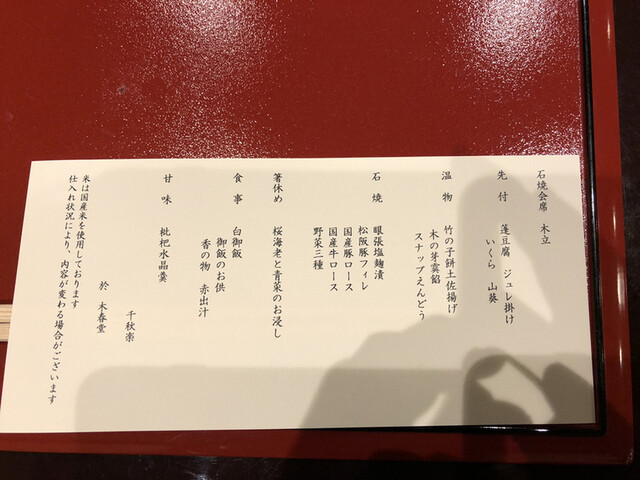 石焼会席　木立
先付　蓬豆腐　ジュレ掛け
いくら　山葵
温物　竹の子餅土佐揚げ
木の芽霙餡
スナップえんどう
石焼　眼張塩麹漬
松阪豚フィレ
国産豚ロース
国産牛ロース
野菜三種
箸休め　桜海老と青菜のお浸し
食事　白御飯
御飯のお供
香の物　赤出汁
甘味　枇杷水晶羹
千秋楽
於　木春堂
米は国産米を使用しております
仕入れ状況により、内容が変わる場合がございます